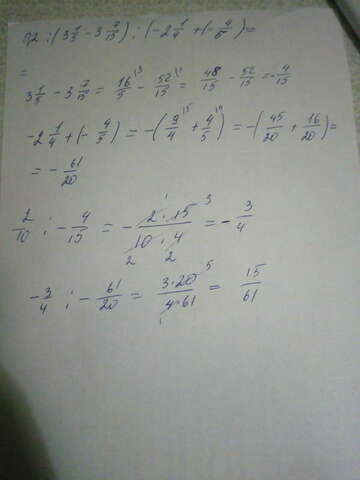 0,2 : (3 1/5 - 3 7/15) : (-2 1/4 + (- 4/5) =
=
3 1/5 - 3 7/15 = 16/5 - 52/15 = 48/15 - 52/15 = - 4/15
-2 1/4 + (- 4/5) = -(9/4 + 4/5) = -(45/20 + 16/20) =
= - 61/20
2/10 : - 4/15 = - 2·15/10·4 = - 3/4
- 3/4 : - 61/20 = 3·20/4·61 = 15/61